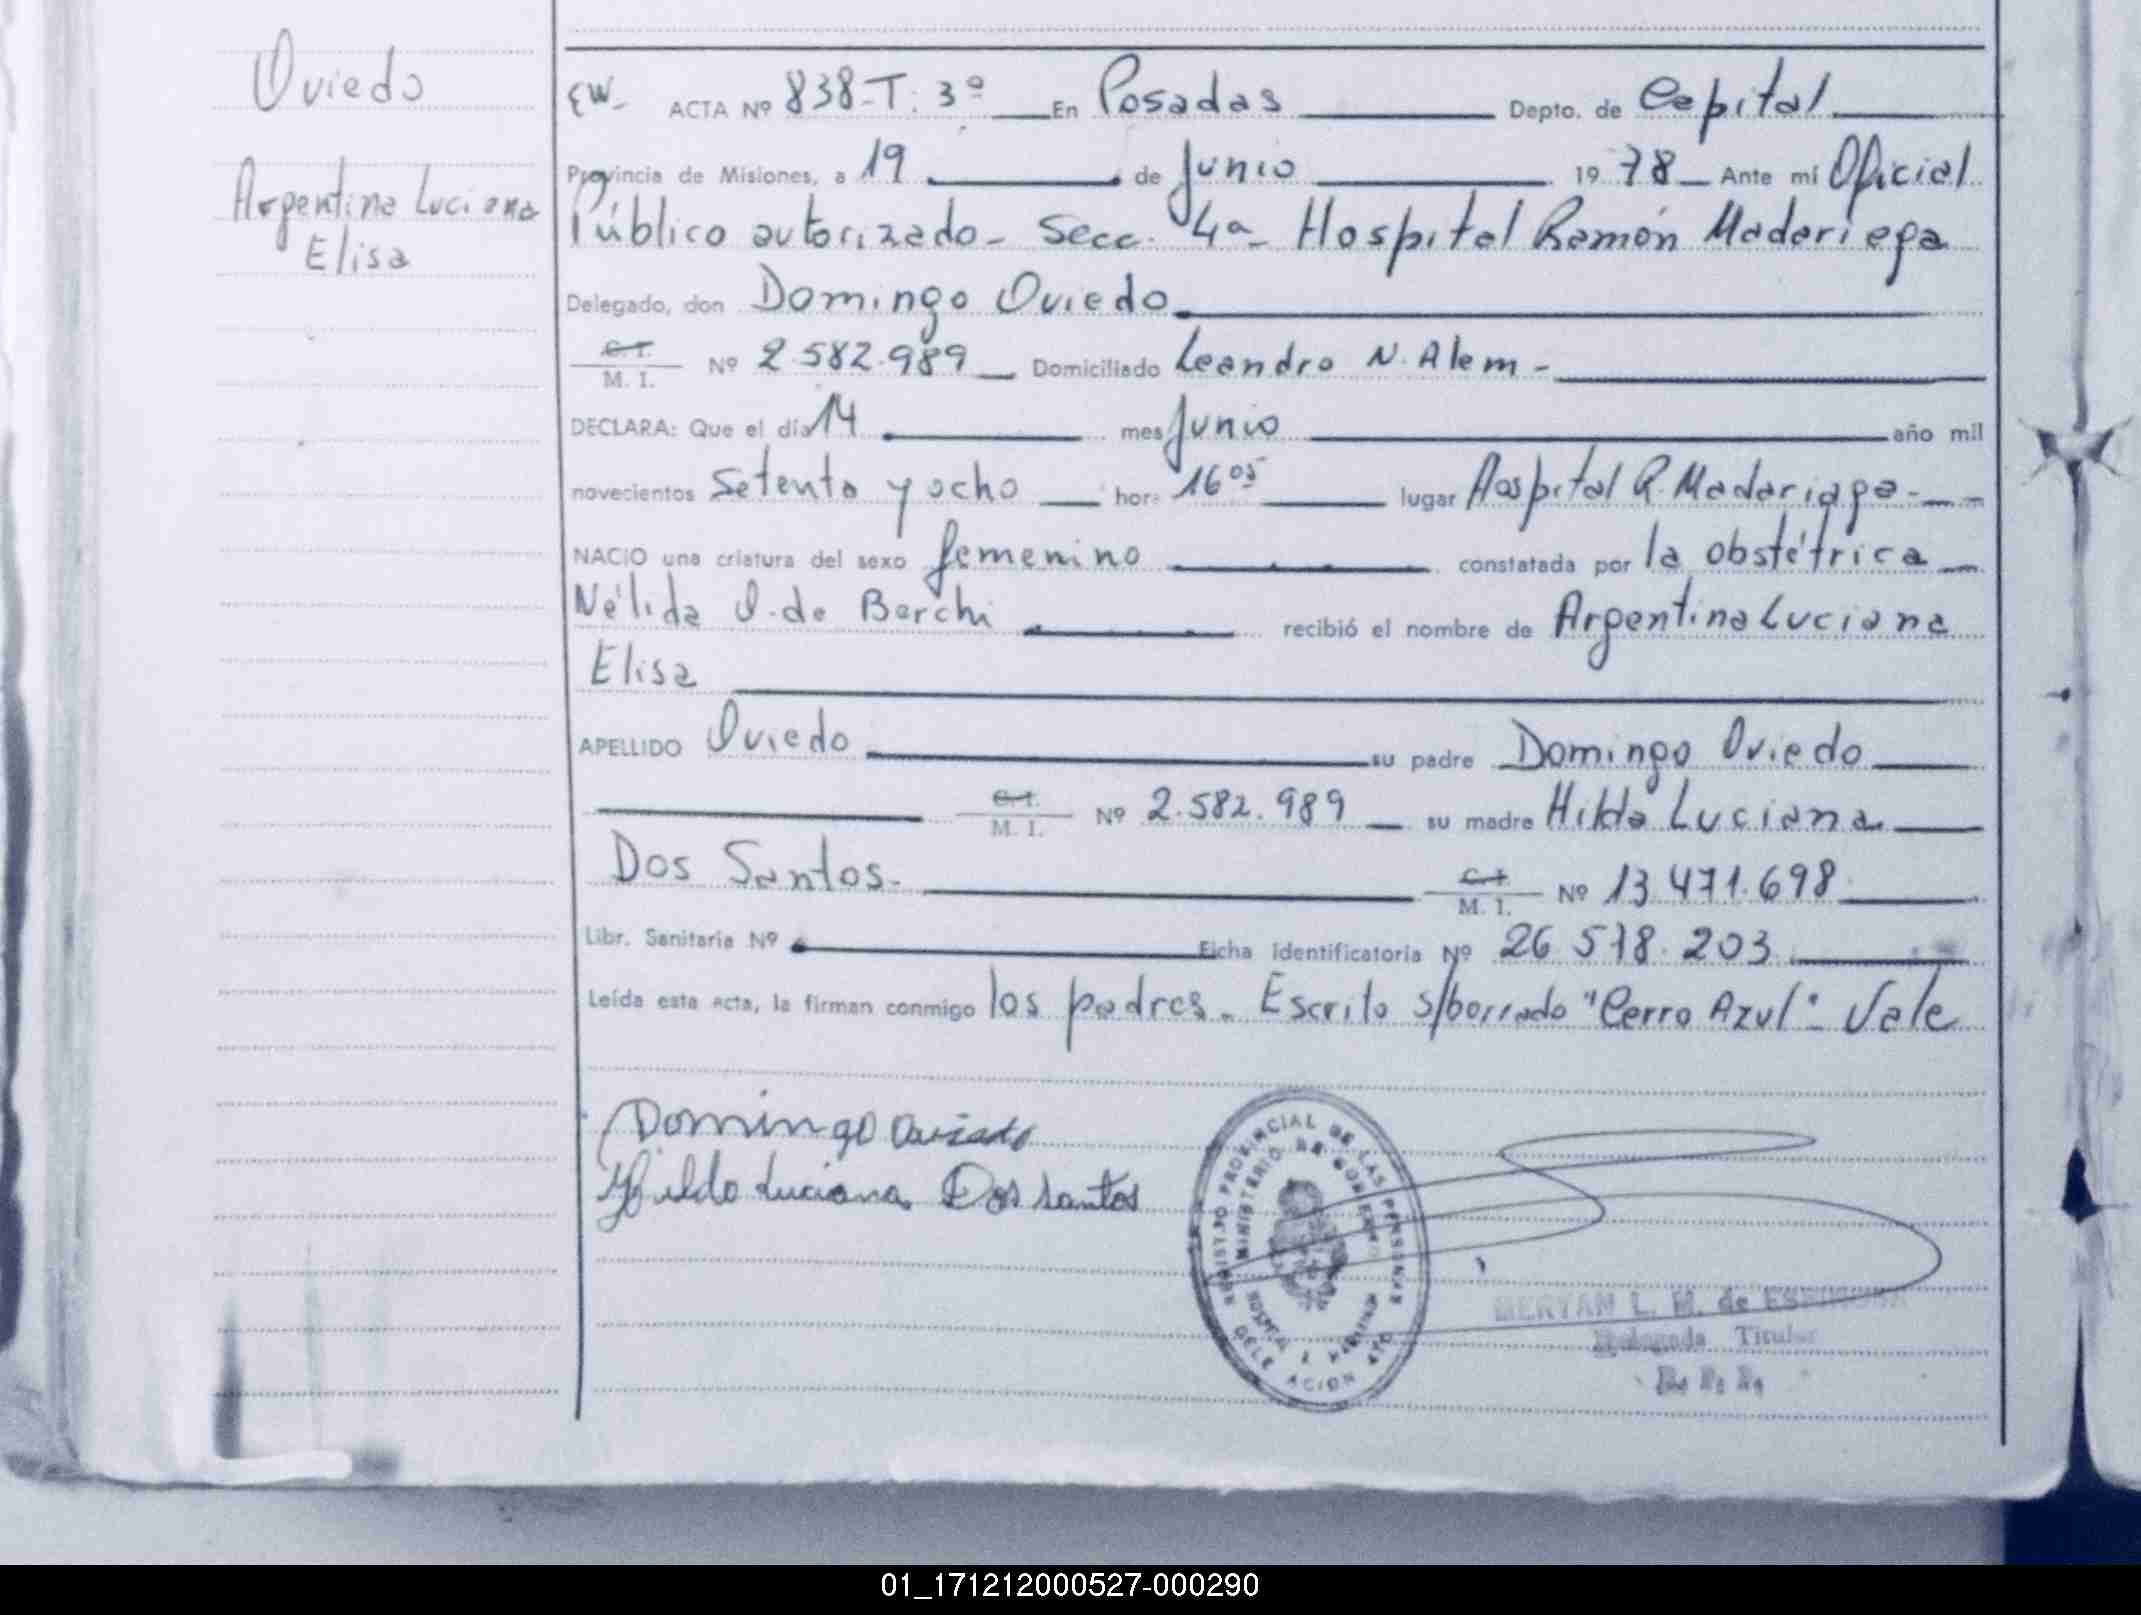 Oviedo
Argentina Luciana
Elisa
EW- ACTA Nº 838-T. 3º En Posadas Depto. de Capital
Provincia de Misiones, a 19 de Junio 1978 Ante mí Oficial
Público autorizado - Secc. 4a- Hospital Ramón Madariaga
Delegado, don Domingo Oviedo
C. I.
M. I. Nº 2.582.989 Domiciliado Leandro N. Alem -
DECLARA: Que el día 14 mes Junio año mil
novecientos setenta y ocho hora 16 05 lugar Hospital R. Madariaga -
NACIO una criatura del sexo femenino constatada por la obstétrica
Nélida O. de Barchi recibió el nombre de Argentina Luciana
Elisa
APELLIDO Oviedo su padre Domingo Oviedo
C. I.
M. I. Nº 2.582.989 su madre Hilda Luciana
Dos Santos - C. I.
M. I. Nº 13.471.698
Libr. Sanitaria Nº Ficha identificatoria Nº 26.518.203
Leída esta acta, la firman conmigo los padres. Escrito s/borrado "Cerro Azul" - Vale
Domingo Oviedo
Hilda Luciana Dos Santos
REGISTRO PROVINCIAL DE LAS PERSONAS
MINISTERIO DE GOBIERNO
DELEGACION
MERYAN L. M. de
Delegada Titular
01_171212000527-000290